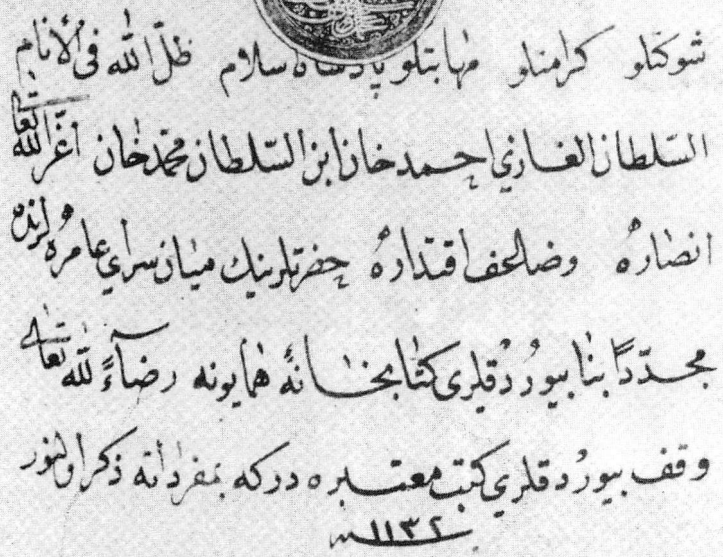 شوكتلو كرامتلو مهابتلو پادشاه اسلام ظلّ الله فى الأنام
السّلطان الغازي احمد خان ابن السّلطان محمّد خان أعزّ الله تعالى
انصاره وضاعف اقتداره حضرتلرينك ميان سراي عامره لرنده
مجدّدًا بنا بيوردقلرى كتابخانهٔ همايونه رضاءً للّه تعالى
وقف بيوردقلري كتب معتبره دركه بمفرداته ذكر اولنور
سنه ١١٣٢